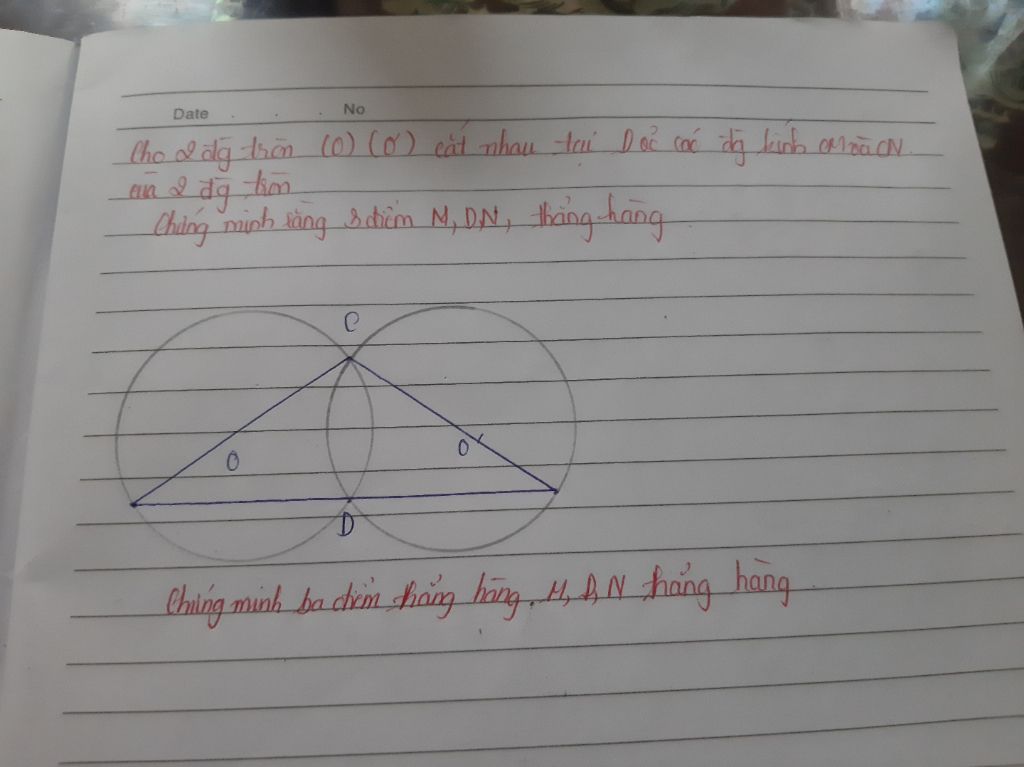 Date . . . No
Cho 2 đg tròn (O) (O') cắt nhau tại D các đg kính CM và CN
của 2 đg tròn
Chứng minh rằng 3 điểm M, D, N, thẳng hàng
C
O
O'
D
Chứng minh ba điểm thẳng hàng. M, D, N thẳng hàng